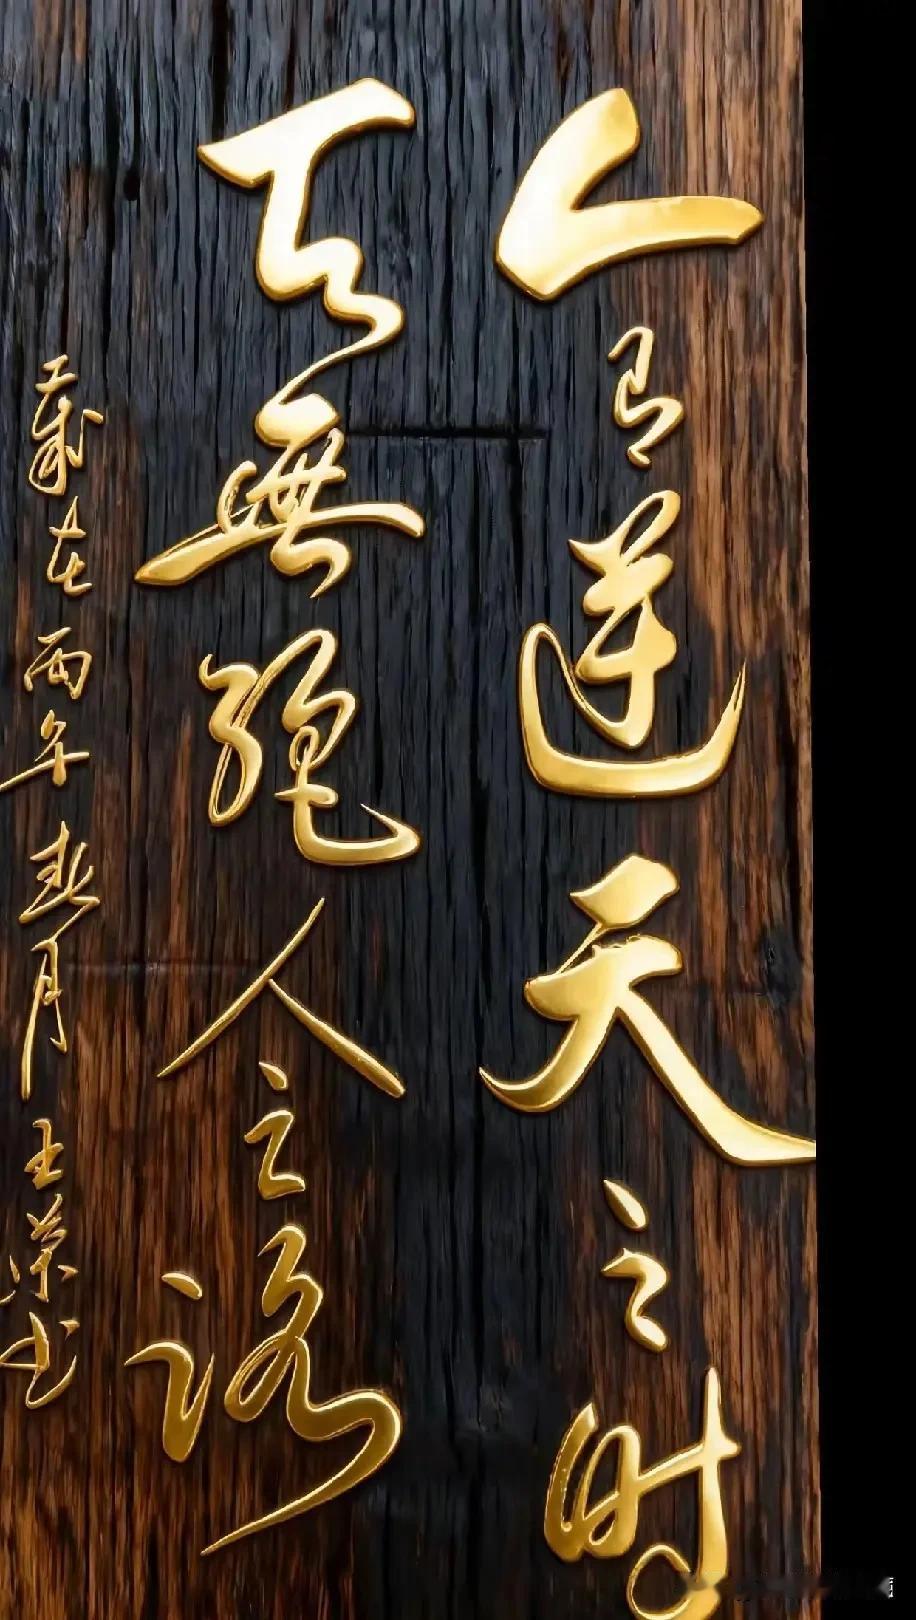 人有逆天之时
天無绝人之路
歲在丙午春月王荣书